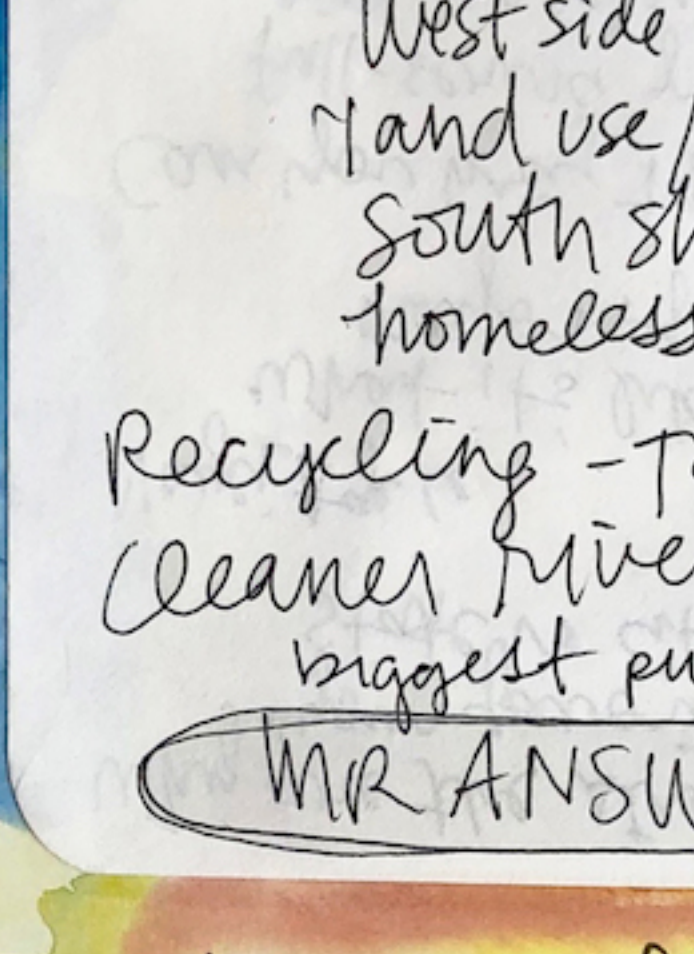 West side
land use /
South sh
homeless
Recycling - To
Cleaner rive
biggest pu
MR ANSW